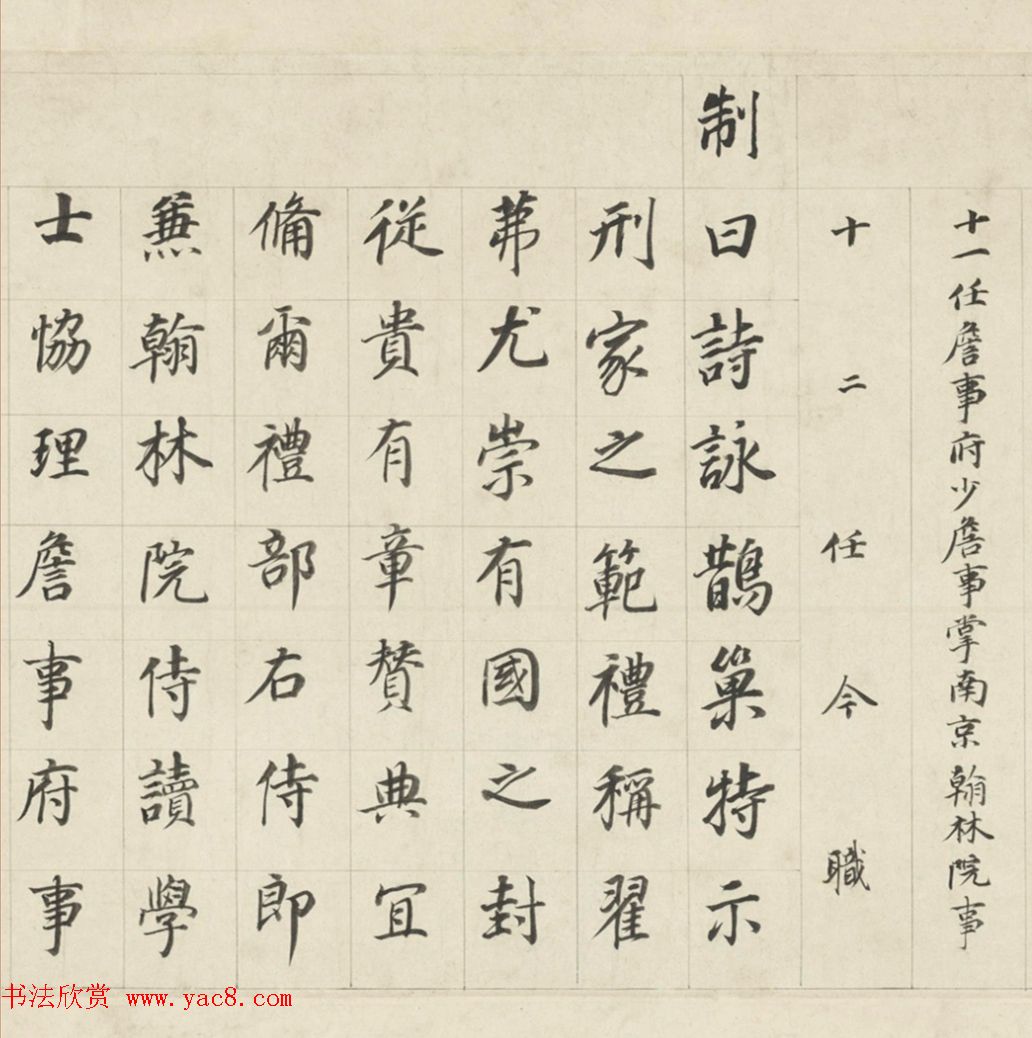 十一任詹事府少詹事掌南京翰林院事
十二任今職
制
曰詩詠鵲巢特示
刑家之範禮稱翟
茀尤崇有國之封
從貴有章贊典宜
備爾禮部右侍郎
兼翰林院侍讀學
士協理詹事府事
书法欣赏 www.yac8.com